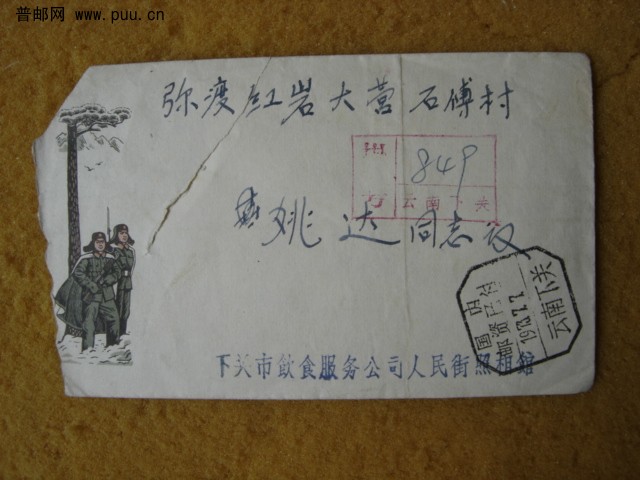 普邮网 www.puu.cn
弥渡红岩大营石傅村
849
云南下关
姚达同志收
国内
邮资已付
云南下关
下关市飲食服务公司人民街照相館